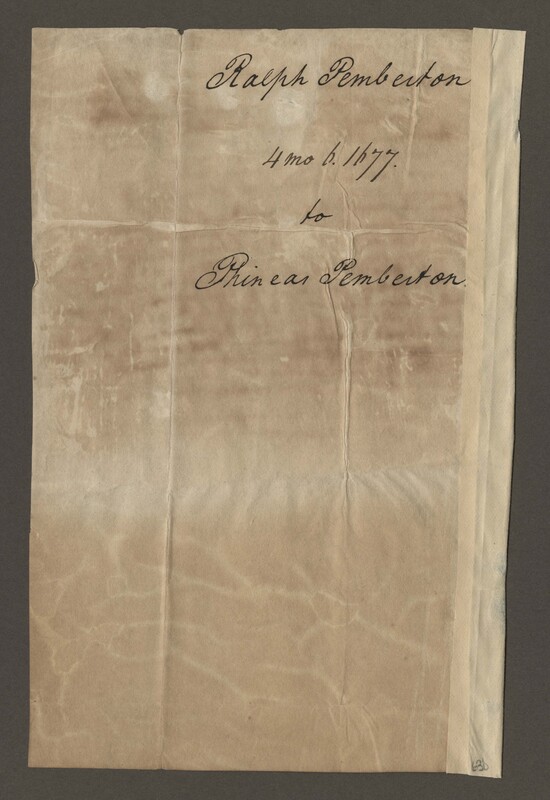 Ralph Pemberton
4 mo 6. 1677.
to
Phineas Pemberton.